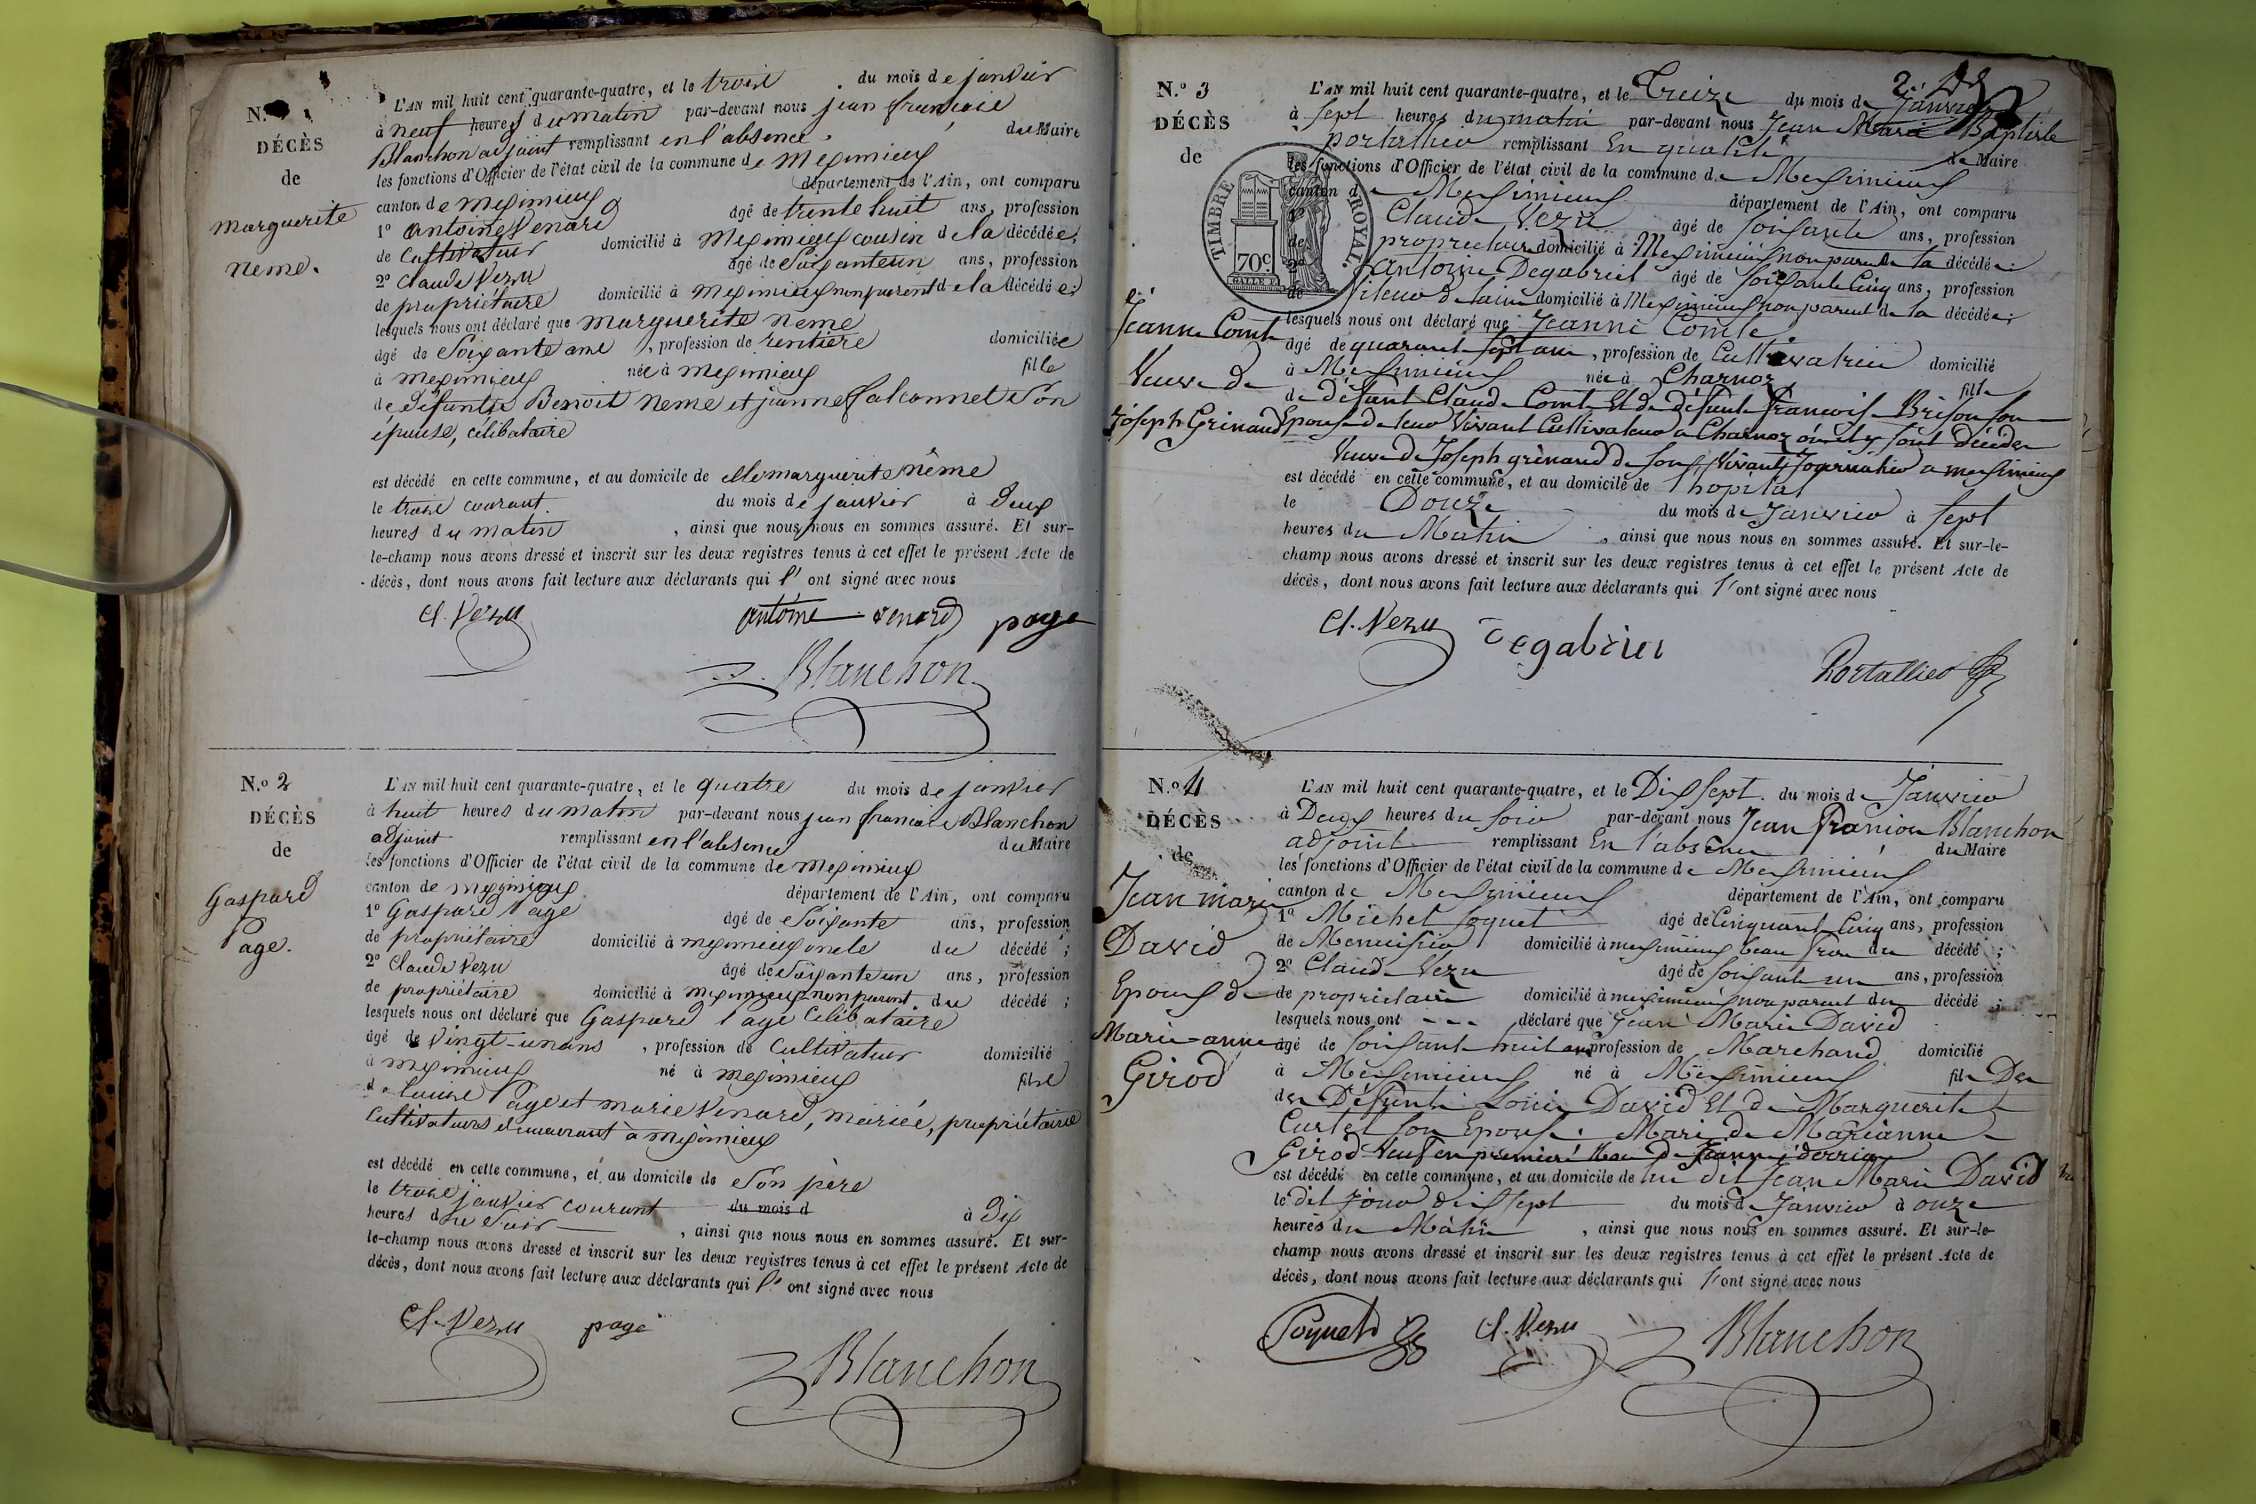 N.o 1
DÉCÈS
de
marguerite
neme.
L'AN mil huit cent quarante-quatre, et le trois du mois de janvier
à neuf heures du matin par-devant nous jean françois
Blanchon adjoint remplissant en l'absence du Maire
les fonctions d'Officier de l'état civil de la commune de Meximieux
canton de meximieux département de l'Ain, ont comparu
1o antoine Venard âgé de trente huit ans, profession
de Cultivateur domicilié à Meximieux cousin de la décédée,
2o Claude Vezu âgé de Soixante un ans, profession
de propriétaire domicilié à Meximieux non parent de la décédée;
lesquels nous ont déclaré que marguerite neme
âgé de Soixante ans, profession de rentière domiciliée
à meximieux née à meximieux fille
de défunts Benoit neme et jeanne falconnet Son
épouse, célibataire
est décédé en cette commune, et au domicile de elle marguerite nême
le trois courant. du mois de janvier à deux
heures du matin, ainsi que nous nous en sommes assuré. Et sur-
le-champ nous avons dressé et inscrit sur les deux registres tenus à cet effet le présent Acte de
décès, dont nous avons fait lecture aux déclarants qui l' ont signé avec nous
Cl. Vezu antoine venard page
Blanchon
N.o 2
DÉCÈS
de
Gaspard
Page.
L'AN mil huit cent quarante-quatre, et le quatre du mois de janvier
à huit heures du matin par-devant nous jean françois Blanchon
adjoint remplissant en l'absence du Maire
les fonctions d'Officier de l'état civil de la commune de Meximieux
canton de meximieux département de l'Ain, ont comparu
1o Gaspard Page âgé de Soixante ans, profession
de propriétaire domicilié à meximieux oncle du décédé;
2o Claude Vezu âgé de Soixante un ans, profession
de propriétaire domicilié à meximieux non parent du décédé;
lesquels nous ont déclaré que Gaspard Page Célibataire
âgé de vingt-un ans, profession de Cultivateur domicilié
à meximieux né à meximieux fils
de Page et marie Venard, mariés, propriétaire
Cultivateurs demeurant à meximieux
est décédé en cette commune, et au domicile de Son père
le trois janvier courant du mois d à Dix
heures du Soir, ainsi que nous nous en sommes assuré. Et sur-
le-champ nous avons dressé et inscrit sur les deux registres tenus à cet effet le présent Acte de
décès, dont nous avons fait lecture aux déclarants qui l' ont signé avec nous
Cl. Vezu page
Blanchon
N.o 3
DÉCÈS
de
Jeanne Comte
Veuve de
Joseph Grinand
TIMBRE ROYAL.
70c
L'AN mil huit cent quarante-quatre, et le Treize du mois de Janvier
à Sept heures du matin par-devant nous Jean Marie Baptiste
portallier remplissant En qualité de Maire
les fonctions d'Officier de l'état civil de la commune de Meximieux
canton de Meximieux département de l'Ain, ont comparu
1o Claude Vezu âgé de Soixante ans, profession
de propriétaire domicilié à Meximieux non parent de la décédée;
2o antoine Degabriel âgé de Soixante Cinq ans, profession
de fileur de laine domicilié à Meximieux non parent de la décédée;
lesquels nous ont déclaré que Jeanne Comte
âgé de quarante Sept ans, profession de Cultivatrice domicilié
à Meximieux née à Charnoz fille
de défunt Claude Comte Et de défunte Françoise Brison Son
Epouse de leur Vivant Cultivateur a Charnoz ou ils y sont décédés
Veuve de Joseph grinand de Son Vivant Journalier a meximieux
est décédé en cette commune, et au domicile de l'hopital
le Douze du mois de Janvier à Sept
heures du Matin, ainsi que nous nous en sommes assuré. Et sur-le-
champ nous avons dressé et inscrit sur les deux registres tenus à cet effet le présent Acte de
décès, dont nous avons fait lecture aux déclarants qui l' ont signé avec nous
Cl. Vezu Degabriel
Portallier
N.o 4
DÉCÈS
de
Jean marie
David
Epoux de
Marie-anne
Girod
L'AN mil huit cent quarante-quatre, et le Dix Sept du mois de Janvier
à Deux heures du soir par-devant nous Jean François Blanchon
adjoint remplissant En l'absence du Maire
les fonctions d'Officier de l'état civil de la commune de Meximieux
canton de Meximieux département de l'Ain, ont comparu
1o Michel Soquet âgé de Cinquante Cinq ans, profession
de Menuisier domicilié à meximieux beau frere du décédé;
2o Claude Vezu âgé de Soixante un ans, profession
de propriétaire domicilié à meximieux non parent du décédé;
lesquels nous ont - - - déclaré que Jean Marie David
âgé de Soixante huit ans profession de Marchand domicilié
à Meximieux né à Meximieux fils De
des Défunts Louis David Et de Marguerite
Curlet Son Epouse. Mari de Marianne
Girod Veuf en premiere de Jeanne
est décédé en cette commune, et au domicile de lui dit Jean Marie David
le dit jour dix Sept du mois de Janvier à onze
heures du Matin, ainsi que nous nous en sommes assuré. Et sur-le-
champ nous avons dressé et inscrit sur les deux registres tenus à cet effet le présent Acte de
décès, dont nous avons fait lecture aux déclarants qui l' ont signé avec nous
Soquet Cl. Vezu Blanchon